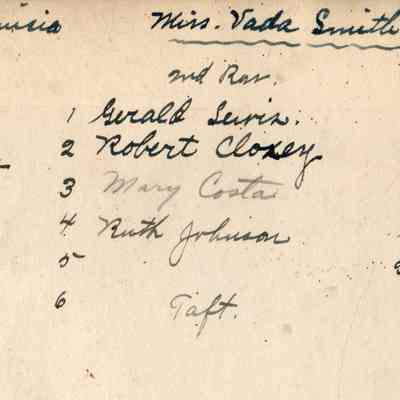 Miss. Vada Smith
2nd Row.
1 Gerald Lewis.
2 Robert Cloxey
3 Mary Costa
4 Ruth Johnson
5
6 Taft.